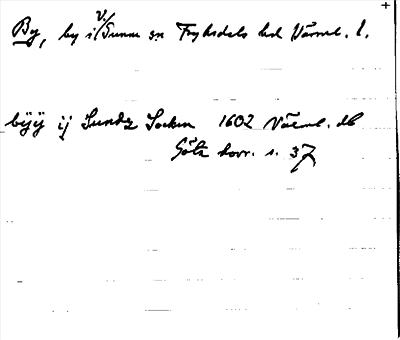 By, by i V. Sunne sn Fryksdals hd Värml. l.
bÿÿ ij Sundz Socken 1602 Värml. db
Göta havr. s. 37